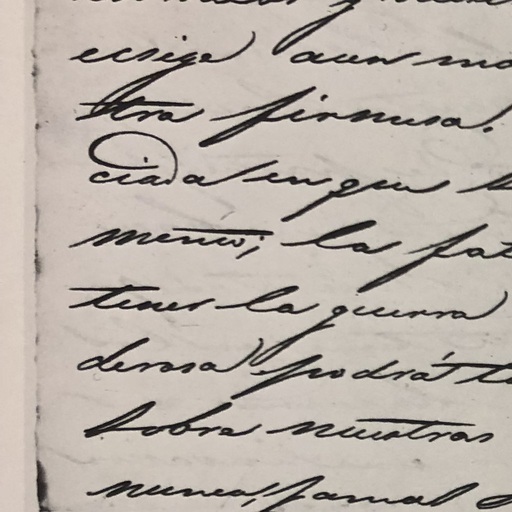 ecsige aun ma
tra firmesa.
ciada en que s
mento; la fat
tener la guerra
derosa podrá t
sobra nuestras
nunca, jamas